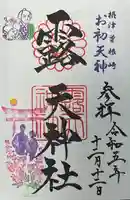 摂津曽根崎
お初天神
露天神社
参拝
令和五年
十二月十二日